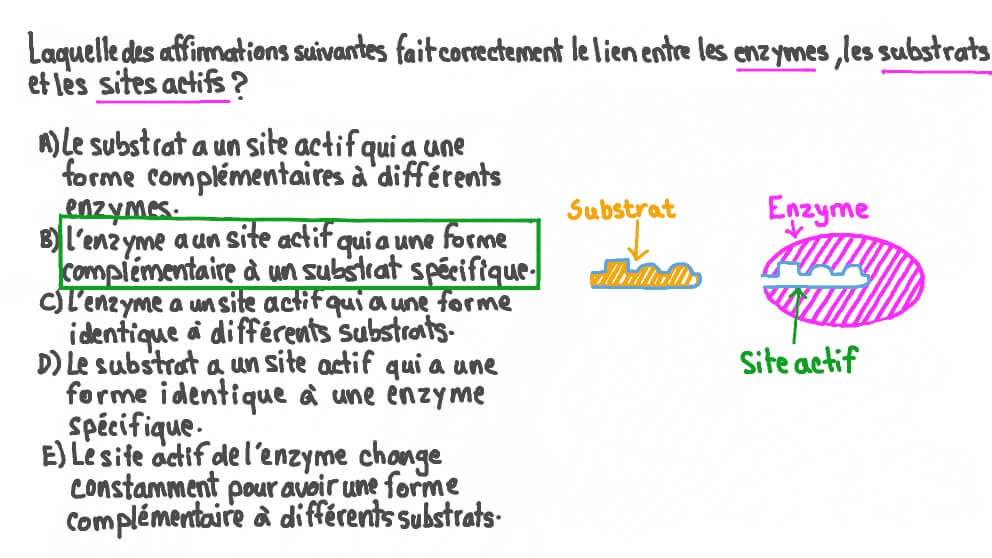 Laquelle des affirmations suivantes fait correctement le lien entre les enzymes, les substrats
et les sites actifs ?
A) Le substrat a un site actif qui a une
forme complémentaires à différents
enzymes.
B) l'enzyme a un site actif qui a une forme
complémentaire à un substrat spécifique.
C) L'enzyme a un site actif qui a une forme
identique à différents substrats.
D) Le substrat a un site actif qui a une
forme identique à une enzyme
spécifique.
E) Le site actif de l'enzyme change
constamment pour avoir une forme
complémentaire à différents substrats.
Substrat
Enzyme
Site actif